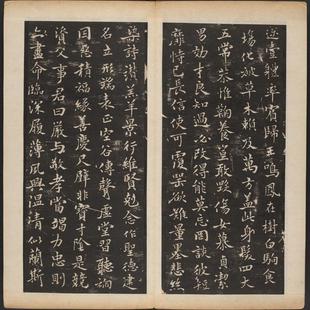 迩壹體率賓歸王鳴鳳在樹白駒食
場化被草木賴及萬方蓋此身髮四大
五常恭惟鞠養豈敢毀傷女慕貞潔
男效才良知過必改得能莫忘罔談彼短
靡恃己長信使可覆器欲難量墨悲絲
染詩讚羔羊景行維賢剋念作聖德建
名立形端表正空谷傳聲虛堂習聽禍
因惡積福緣善慶尺璧非寶寸陰是競
資父事君曰嚴與敬孝當竭力忠則
盡命臨深履薄夙興溫凊似蘭斯